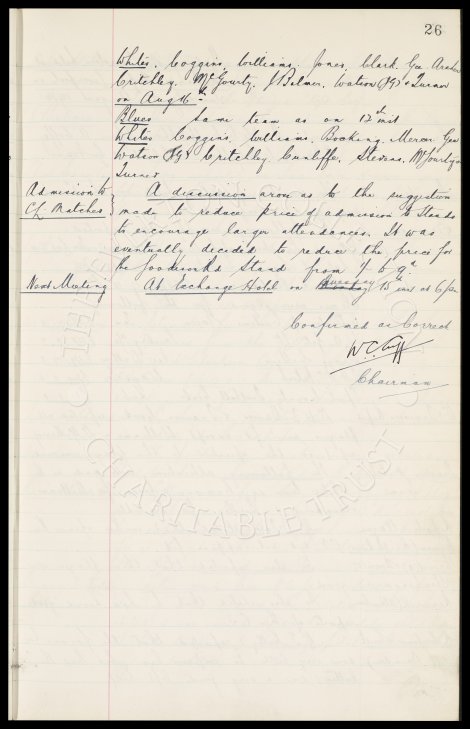 26
Whites, Coggins, Williams, Jones, Clark, Geo.
Critchley, McGourty, J Palmer, Watson (JG) & Turner
on Aug 16th
Blues Same team as on 12th inst
Whites Coggins, Williams, Bocking, Mercer, Geo
Watson (JG) Critchley Cunliffe, Stevens, McGourty or
Turner
Admission to A discussion arose as to the suggestion
CL Matches made to reduce price of admission to Stands
to encourage larger attendances. It was
eventually decided to reduce the price for
the Goodison Rd Stand from 1/- to 9d
Next Meeting At Exchange Hotel on Tuesday 15 inst at 6/pm
Confirmed as Correct
W.C. Cuff
Chairman
CHARITABLE TRUST